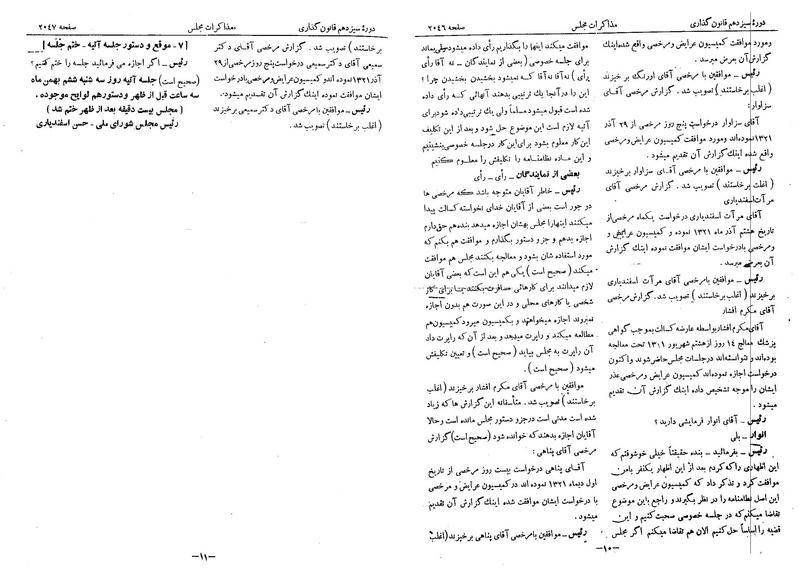 دورهٔ سیزدهم قانون گذاری مذاکرات مجلس صفحه ۲۰۴۶
ومورد موافقت کمیسیون عرایض ومرخصی واقع شده اینك
گزارش آن بعرض میرسد.
رئیس ــ موافقین با مرخصی آقای اورنك برخیزند
(اغلب برخاستند) تصویب شد. گزارش مرخصی آقای
سزاوار:
آقای سزاوار درخواست پنج روز مرخصی از ۲۹ آذر
۱۳۲۱ نموده‌اند ومورد موافقت کمیسیون عرایض ومرخصی
واقع شده اینك گزارش آن تقدیم میشود.
رئیس ــ موافقین با مرخصی آقای سزاوار برخیزند
(اغلب برخاستند) تصویب شد. گزارش مرخصی آقای
مرآت اسفندیاری
آقای مرآت اسفندیاری درخواست یکماه مرخصی از
تاریخ هشتم آذر ماه ۱۳۲۱ نموده و کمیسیون عرایض و
ومرخصی بادرخواست ایشان موافقت نموده اینك گزارش
آن بعرض میرسد.
رئیس ــ موافقین بامرخصی آقای مرآت اسفندیاری
برخیزند (اغلب برخاستند) تصویب شد. گزارش مرخصی
آقای مکرم افشار
آقای مکرم افشار بواسطه عارضه کسالت بموجب گواهی
پزشك معالج ۱۴ روز از هشتم شهریور تحت معالجه
بوده‌اند و نتوانسته‌اند درجلسات مجلس حاضر شوند و اکنون
درخواست اجازه نموده‌اند کمیسیون عرایض ومرخصی عذر
ایشان را موجه تشخیص داده اینك گزارش آن تقدیم
میشود.
رئیس ــ آقای انوار فرمایشی دارید؟
انوار ــ بلی
رئیس ــ بفرمائید ــ بنده حقیقتاً خیلی خوشوقتم که
این اظهاری را که کردم بعد از این اظهار یکنفر بامن
موافقت کرد و تذکر داد که کمیسیون عرایض ومرخصی
این اصل نظامنامه را در نظر بگیرند و راجع باین موضوع
تقاضا میکنم که در جلسه خصوصی صحبت کنیم و این
قضیه را اساساً حل کنیم الان هم تقاضا میکنم اگر مجلس
موافقت میکند اینها را بگذاریم رأی داده میشود ولی بماند
برای جلسه خصوصی (بعضی از نمایندگان ــ نه آقا رأی
رأی) نه آقا نه آقا که نمیشود بخشیدن بخشیدن چرا؟
این را در آنجا یك ترتیبی بدهند آنهائی که رأی داده
شده است قبول میشود مسلماً ولی یك ترتیبی داده شود برای
آتیه لازم است این موضوع حل شود و بعد از این تکلیف
این کار معلوم بشود برای این کار درجلسه خصوصی بنشینیم
و این ماده نظامنامه را تکلیفش را معلوم کنیم
بعضی از نمایندگان ــ رأی ــ رأی
رئیس ــ خاطر آقایان متوجه باشد که مرخصی ها
دو جور است بعضی از آقایان خدای نخواسته کسالت پیدا
میکنند اینها را مجلس بهشان اجازه میدهد بنده هم حق دارم
اجازه بدهم و جزو دستور بگذارم و موافقت هم بکنم که
مورد استفاده شان بشود و معالجه بکنند مجلس هم موافقت
میکند (صحیح است) یکی هم این است که بعضی آقایان
لازم میدانند برای کارهائی مسافرت بکنند یا برای کار
شخصی یا کارهای محلی و در این صورت هم بدون اجازه
نمیروند اجازه میخواهند و بکمیسیون میرود کمیسیون هم
مطالعه میکند و راپرت میدهد و بعد از آن که راپرت داد
آن راپرت به مجلس بیاید (صحیح است) و تعیین تکلیفش
میشود (صحیح است).
موافقین با مرخصی آقای مکرم افشار برخیزند (اغلب
برخاستند) تصویب شد. متأسفانه این گزارش ها که زیاد
شده است مدتی است در جزو دستور مجلس مانده است وحالا
آقایان اجازه بدهند که خوانده شود (صحیح است) گزارش
مرخصی آقای پناهی:
آقای پناهی درخواست بیست روز مرخصی از تاریخ
اول دیماه ۱۳۲۱ نموده اند در کمیسیون عرایض و مرخصی
با درخواست ایشان موافقت شده اینك گزارش آن تقدیم
میشود.
رئیس ــ موافقین بامرخصی آقای پناهی برخیزند (اغلب
ــ۱۰ــ
دورهٔ سیزدهم قانون گذاری مذاکرات مجلس صفحه ۲۰۴۷
برخاستند) تصویب شد. گزارش مرخصی آقای دکتر
سمیعی آقای دکتر سمیعی درخواست پنج روز مرخصی از ۲۹
آذر ۱۳۲۱ نموده اند و کمیسیون عرایض ومرخصی بادرخواست
ایشان موافقت نموده اینك گزارش آن تقدیم میشود.
رئیس ــ موافقین با مرخصی آقای دکتر سمیعی برخیزند
(اغلب برخاستند) تصویب شد.
[۷ ــ موقع و دستور جلسه آتیه ــ ختم جلسه]
رئیس ــ اگر اجازه می فرمائید جلسه را ختم کنیم؟
(صحیح است) جلسه آتیه روز سه شنبه ششم بهمن ماه
سه ساعت قبل از ظهر ودستورهم لوایح موجوده.
(مجلس بیست دقیقه بعد از ظهر ختم شد)
رئیس مجلس شورای ملی ــ حسن اسفندیاری
ــ۱۱ــ